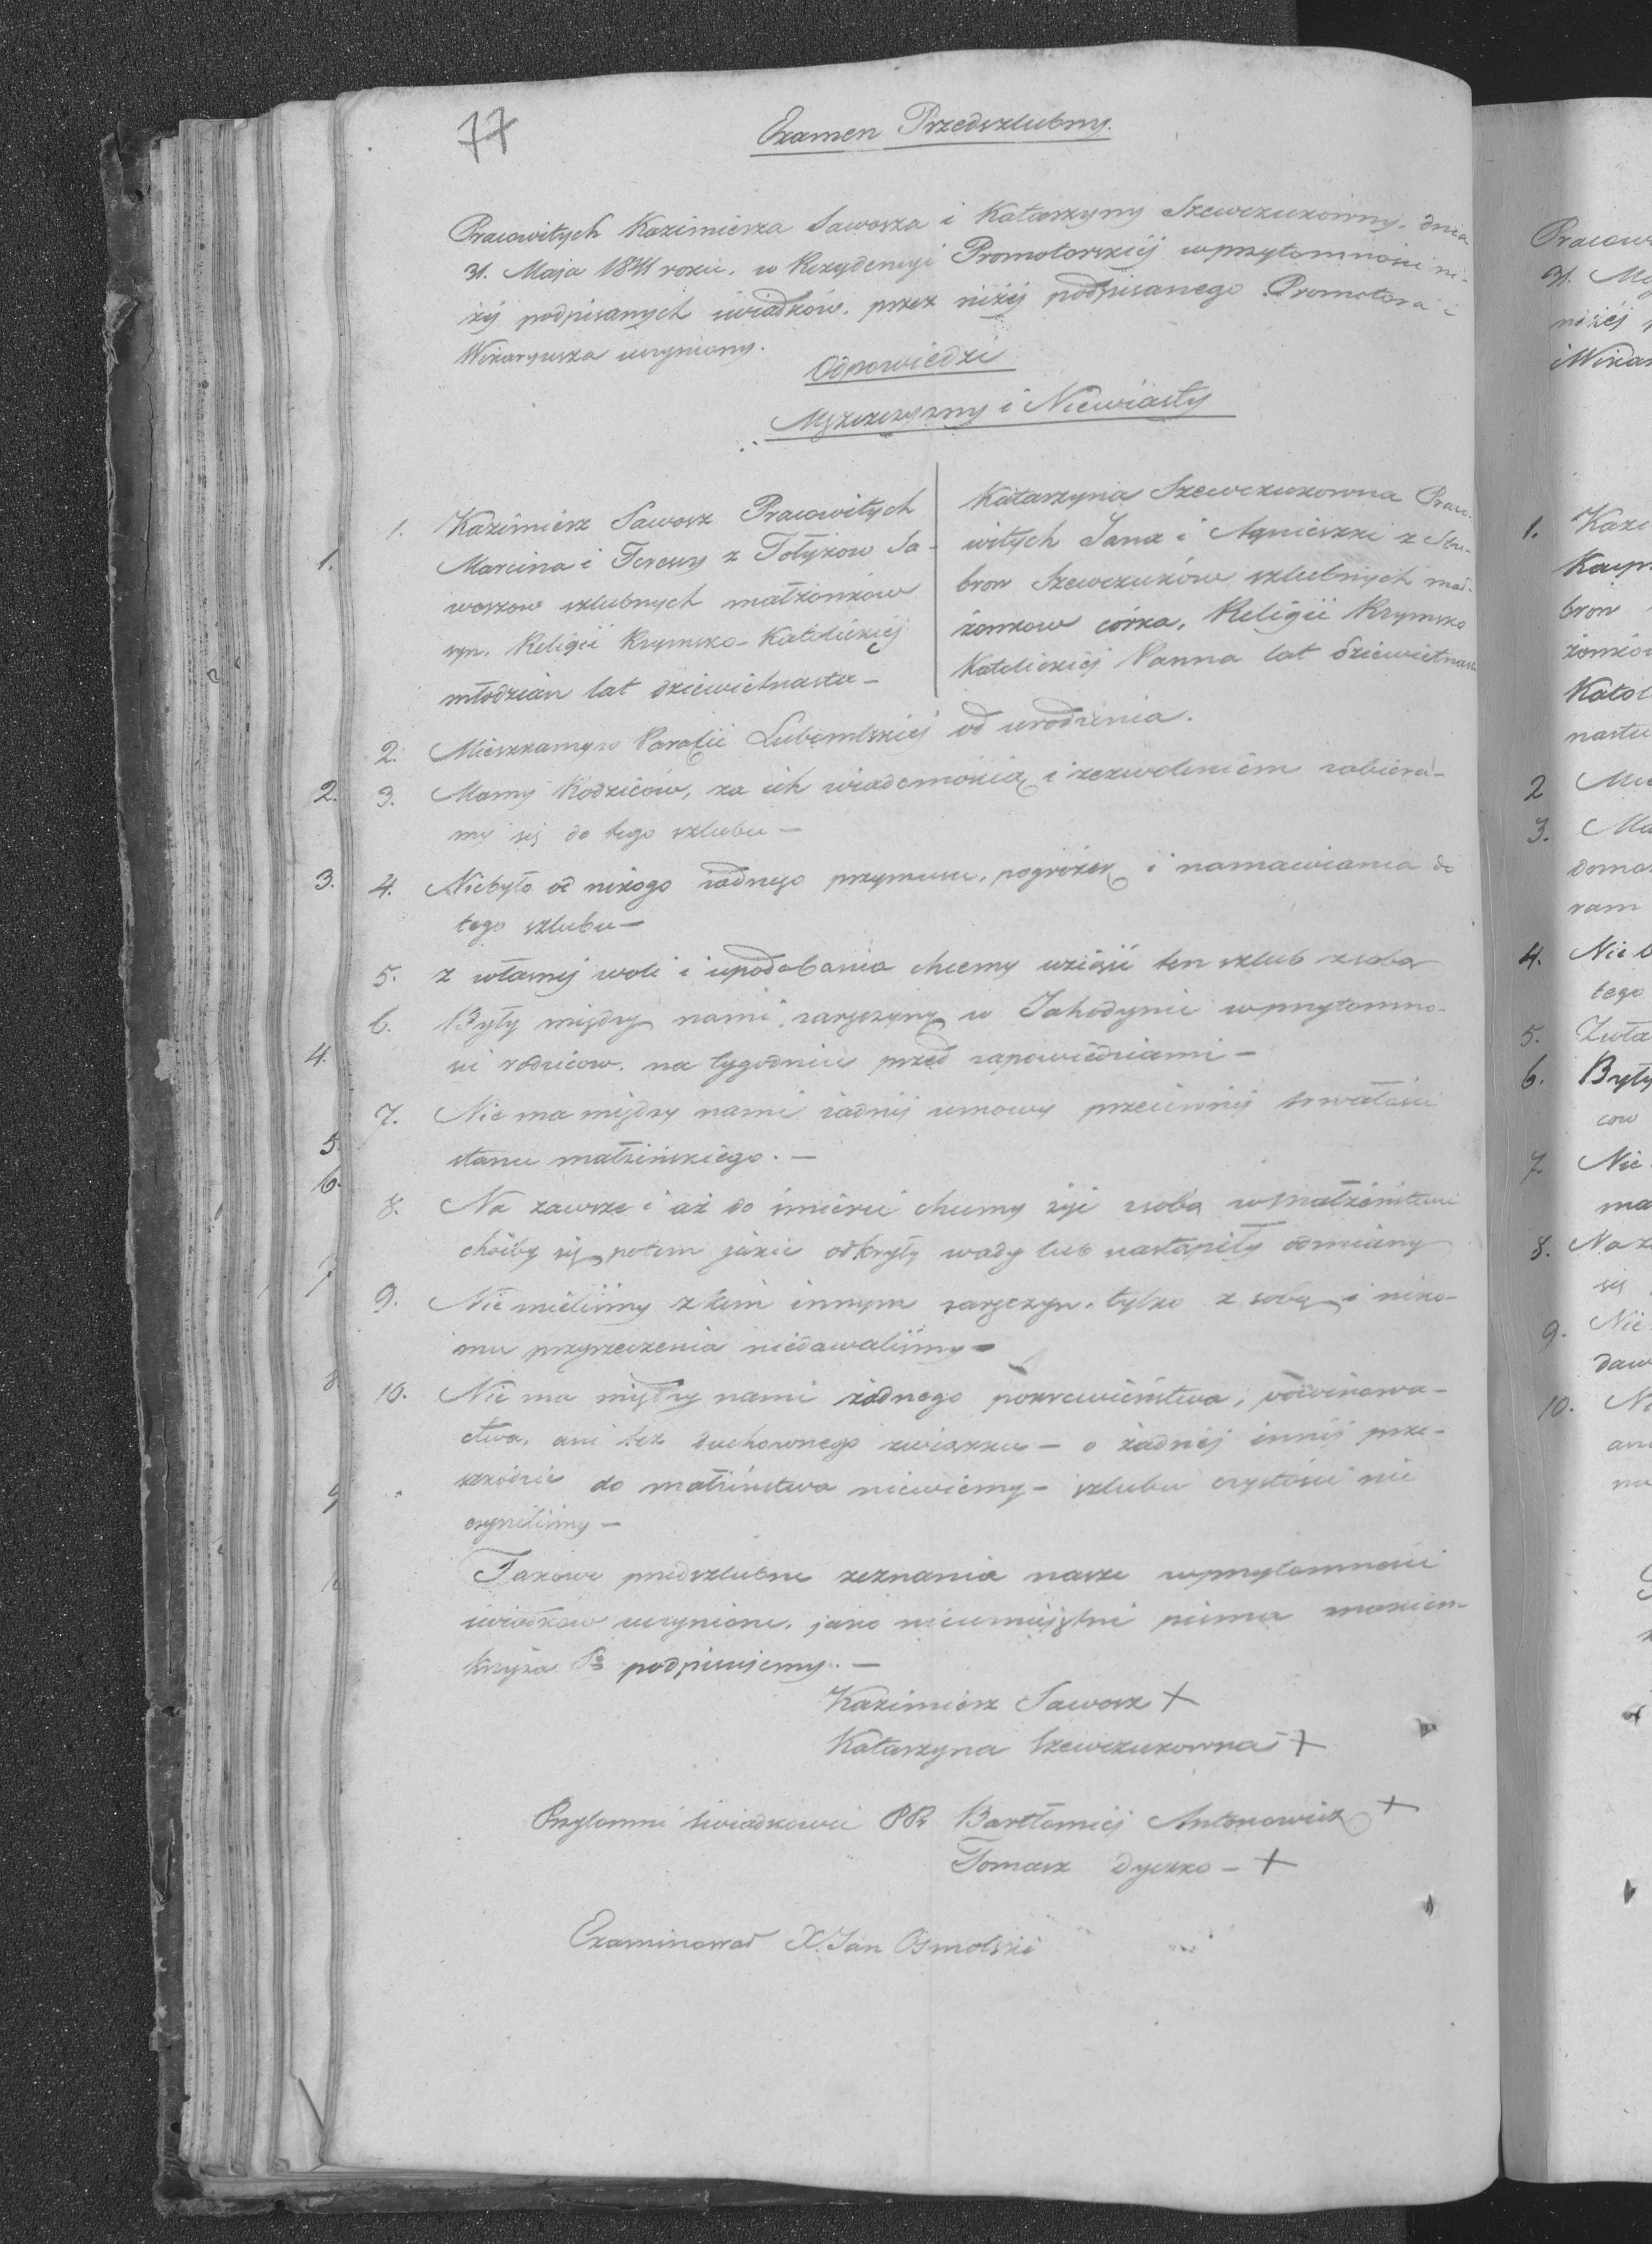 77
Examen Przedszlubny.
Pracowitych Kazimierza Sawosza i Katarzyny Szewczukowny. dnia
31. Maja 1841 roku. w Rezydencyi Promotorskiéj wprzytomnosci ni-
zéj podpisanych swiadków. przez niżéj podpisanego Promotora i
Wikaryusza uczyniony.
Odpowiedzi
Męzczyzny i Niewiasty
1. Kazimierz Sawosz Pracowitych
Marcina i Teressy z Sa-
woszow szlubnych małżonków
syn. Religii Rzymsko-Katolickiéj
młodzian lat dziewietnastu -
Katarzyna Szewczukowna Praco-
witych Jana i Agnieszki z
bron Szewczuków szlubnych mał-
żonkow córka, Religii Rzymsko
Katolickiéj Panna lat
2. Mieszkamy w Parafii Lubomlskiéj od urodzenia.
3. Mamy Rodziców, za ich wiadomością i zezwoleniem zabiera-
my się do tego szlubu -
4. Niebyło od nikogo żadnego przymusu, pogróżek i namawiania do
tego szlubu -
5. z własnéj woli i upodobania chcemy wziąść ten szlub z sobą
6. Były między nami zaręczyny w Jahodynie wprzytomno-
sci rodzicow. na tygodniu przed zapowiedziami -
7. Nie ma między nami żadnéj umowy przeciwnéj trwałości
stanu małżeńskiego. -
8. Na zawsze i aż do śmierci chcemy żyć z sobą w małżeństwie
choćby się potem jakie odkryły wady lub nastąpiły odmiany
9. Nie mieliśmy z kim innym zaręczyn. tylko z sobą i niko-
mu przyrzeczenia niedawaliśmy -
10. Nie ma między nami żadnego pokrewieństwa, powinowa-
ctwa, ani też duchownego związku - o żadnéj innéj prze-
szkodzie do małżeństwa niewiemy - szlubu czystości nie
czyniliśmy -
Takowe przedszlubne zeznania nasze wprzytomności
swiadkow uczynione. jako nieumiejętni pisma znakiem
krzyża Sgo podpisujemy. -
Kazimierz Sawosz +
Katarzyna Szewczukowna +
Przytomni swiadkowie PP. Bartłomiéj Antonowicz +
Tomasz Dyczko - +
Examinował X. Jan Osmolski